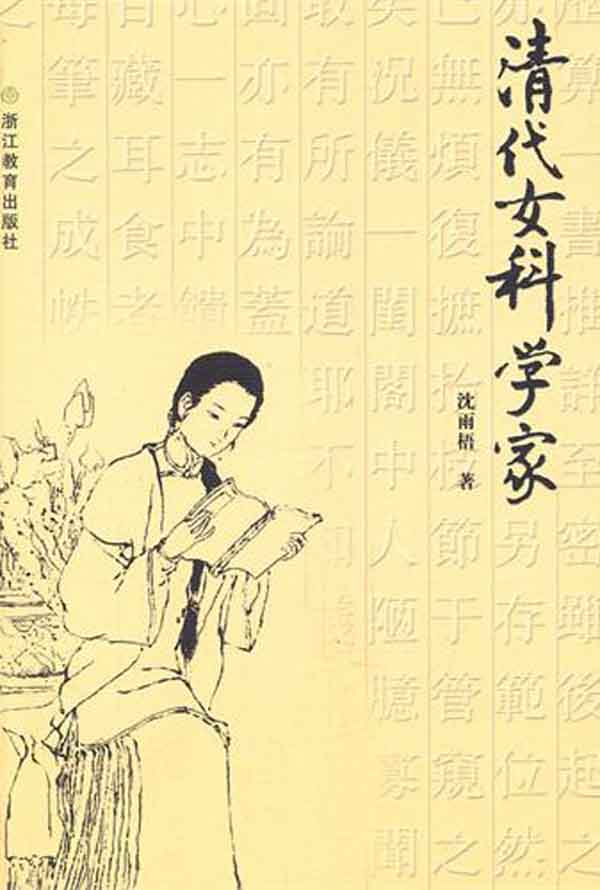 清代女科学家
沈雨梧 著
浙江教育出版社
算一書推詳至密雖後起之
亦
另存範位然
已無煩復摭拾枝節于管窺之
矣況儀一閨閣中人陋臆寡聞
有所論道耶不知
亦有為蓋
心一志中饋
藏耳食老
每筆之成帙